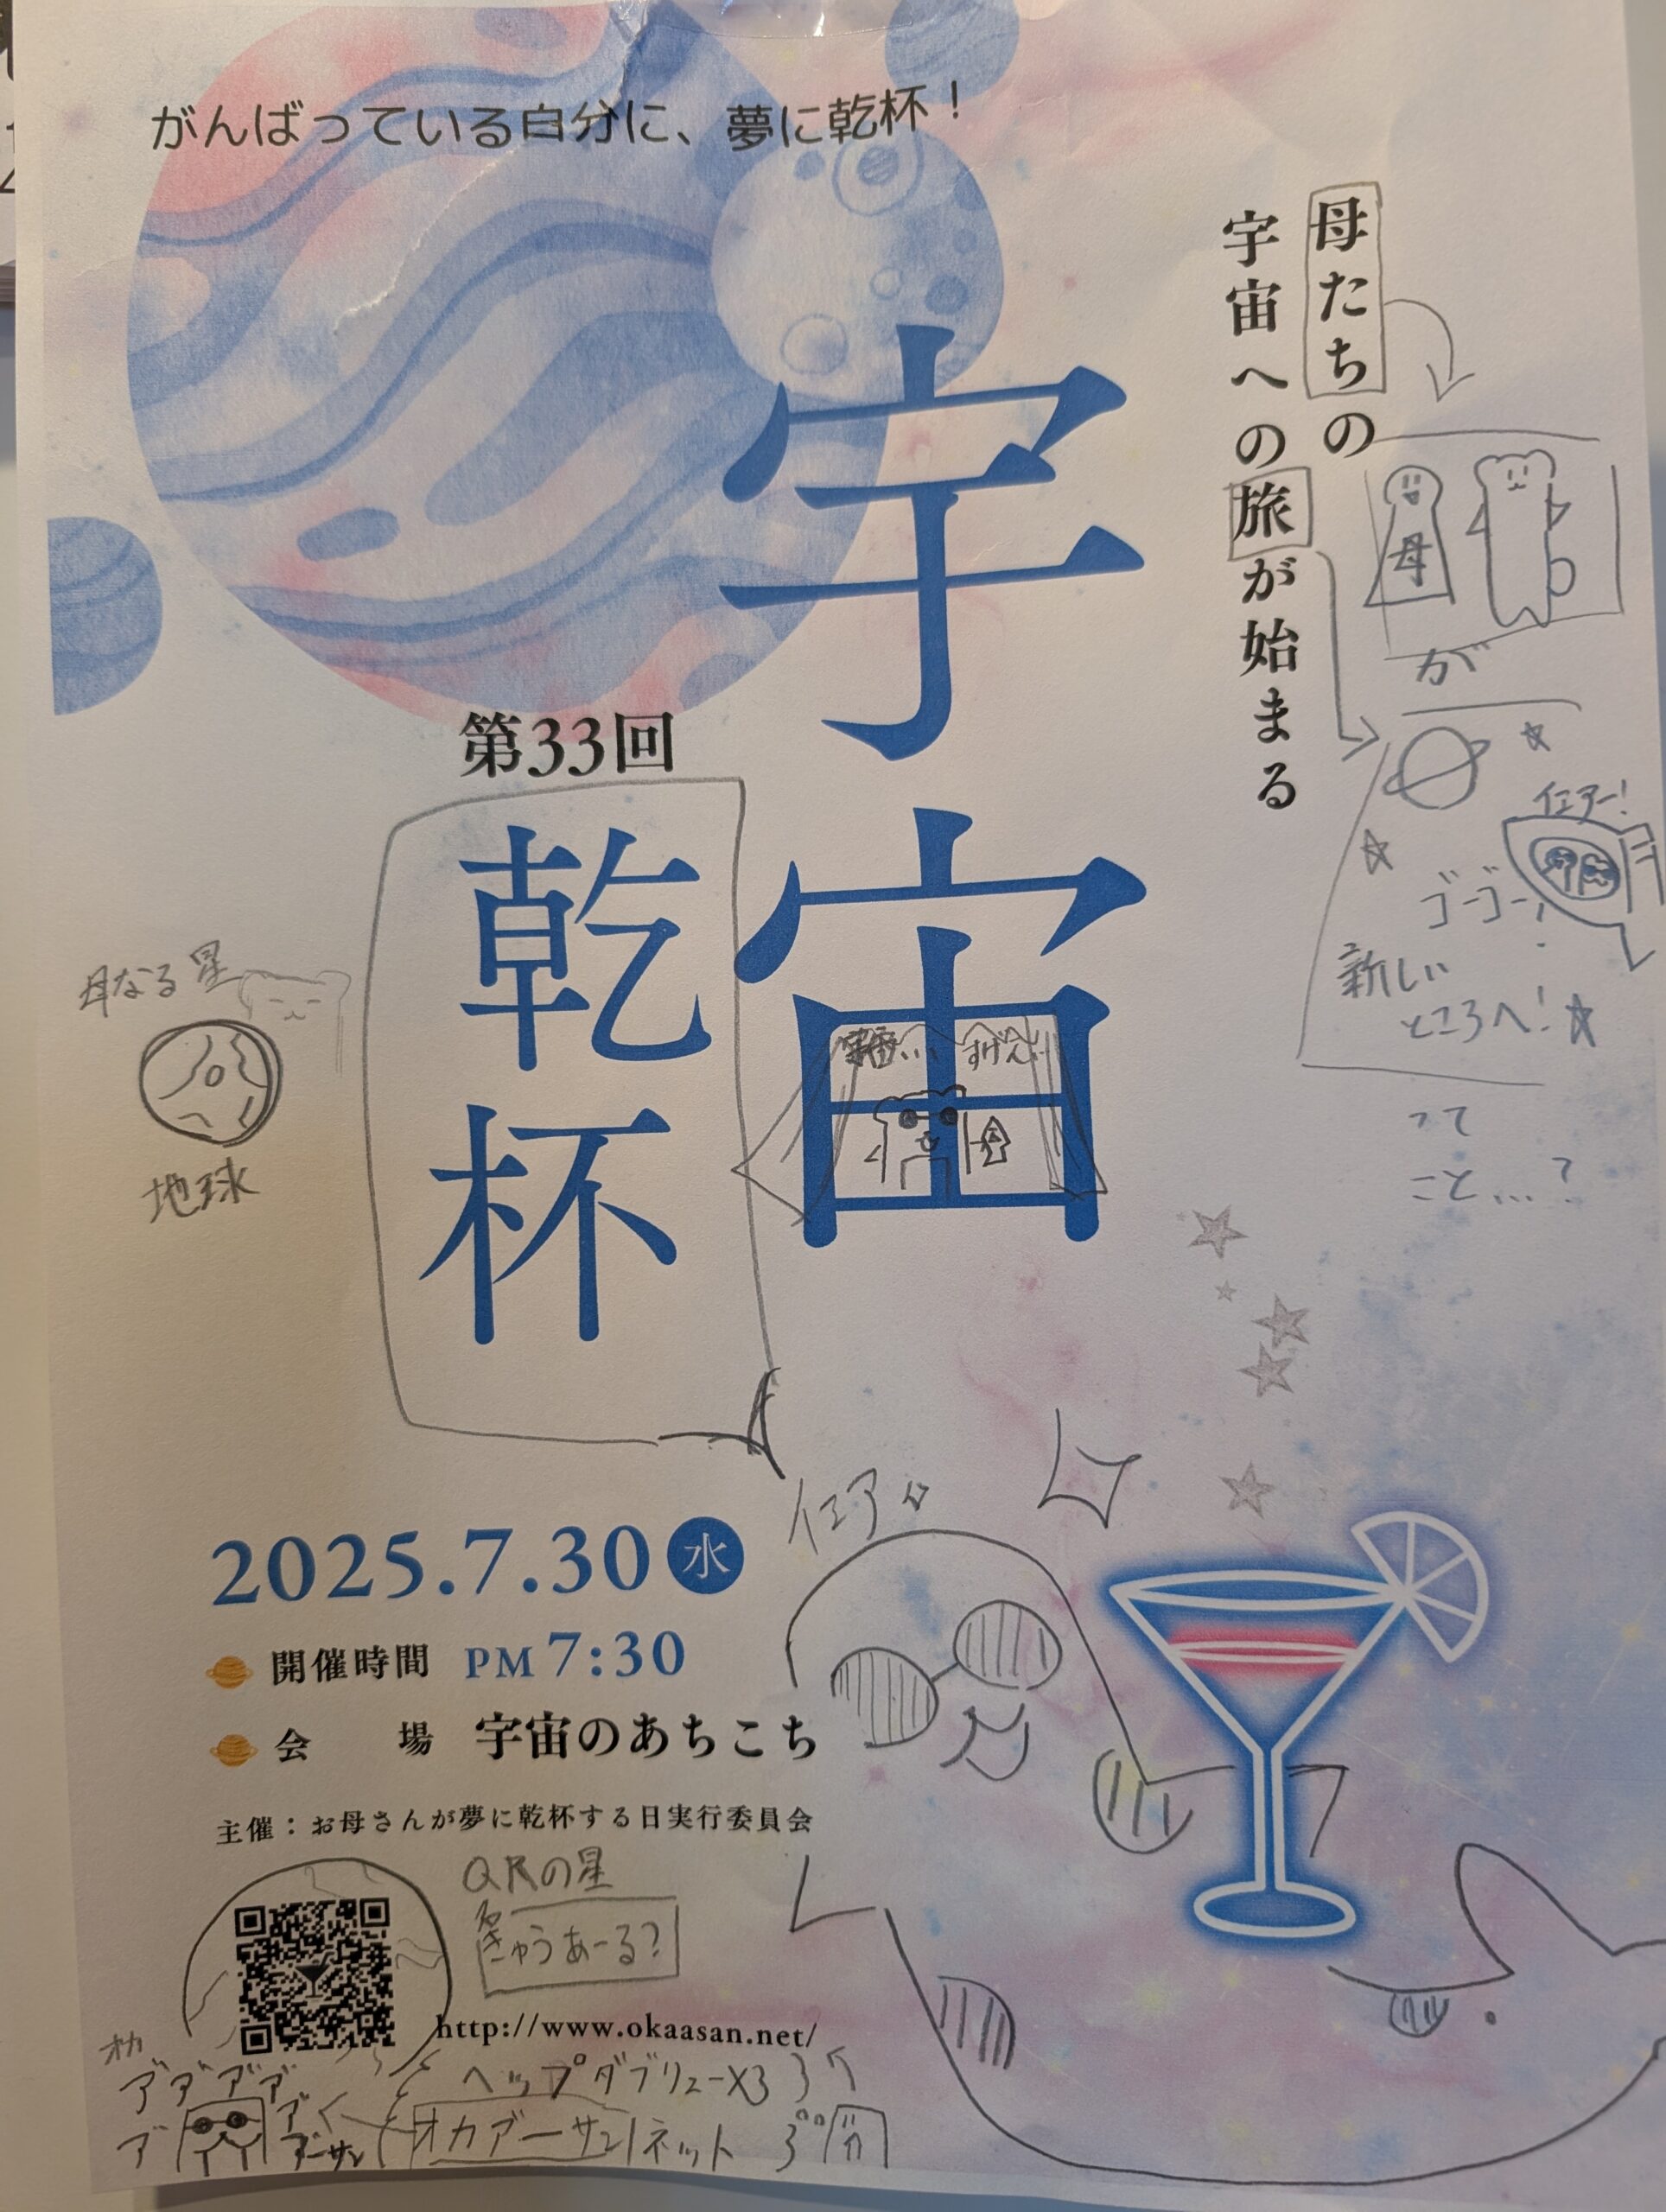 がんばっている自分に、夢に乾杯！
母たちの
宇宙への旅が始まる
母
が
イエアー！
ゴーゴー！
新しい
ところへ！
って
こと…？
宇宙
すげえ
第33回
乾杯
母なる星
地球
イエア
2025.7.30 水
開催時間 PM 7:30
会場 宇宙のあちこち
主催：お母さんが夢に乾杯する日実行委員会
QRの星
きゅうあーる？
http://www.okaasan.net/
オカ
ヘップダブリューX3
アーサン
オカアーサン ネット